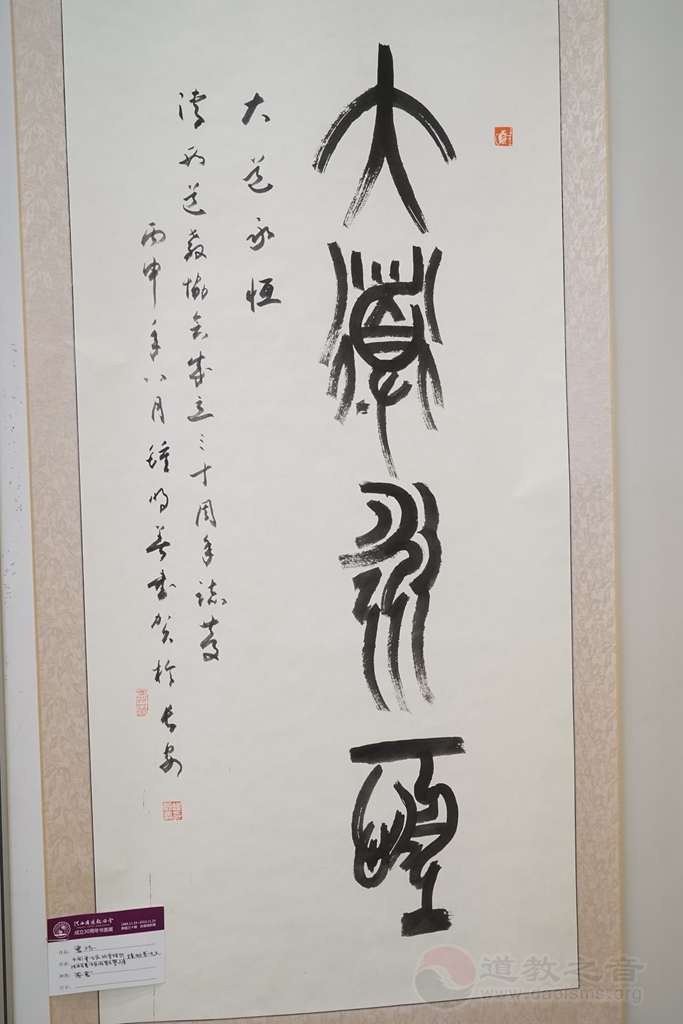 大道永恒
大道永恒
陕西道教協会成立三十周年誌慶
丙申年八月鍾明善书贺於长安
陕西省道教协会
成立30周年书画展
作品:
作者:
尺寸:
道教之音
www.daoisms.org